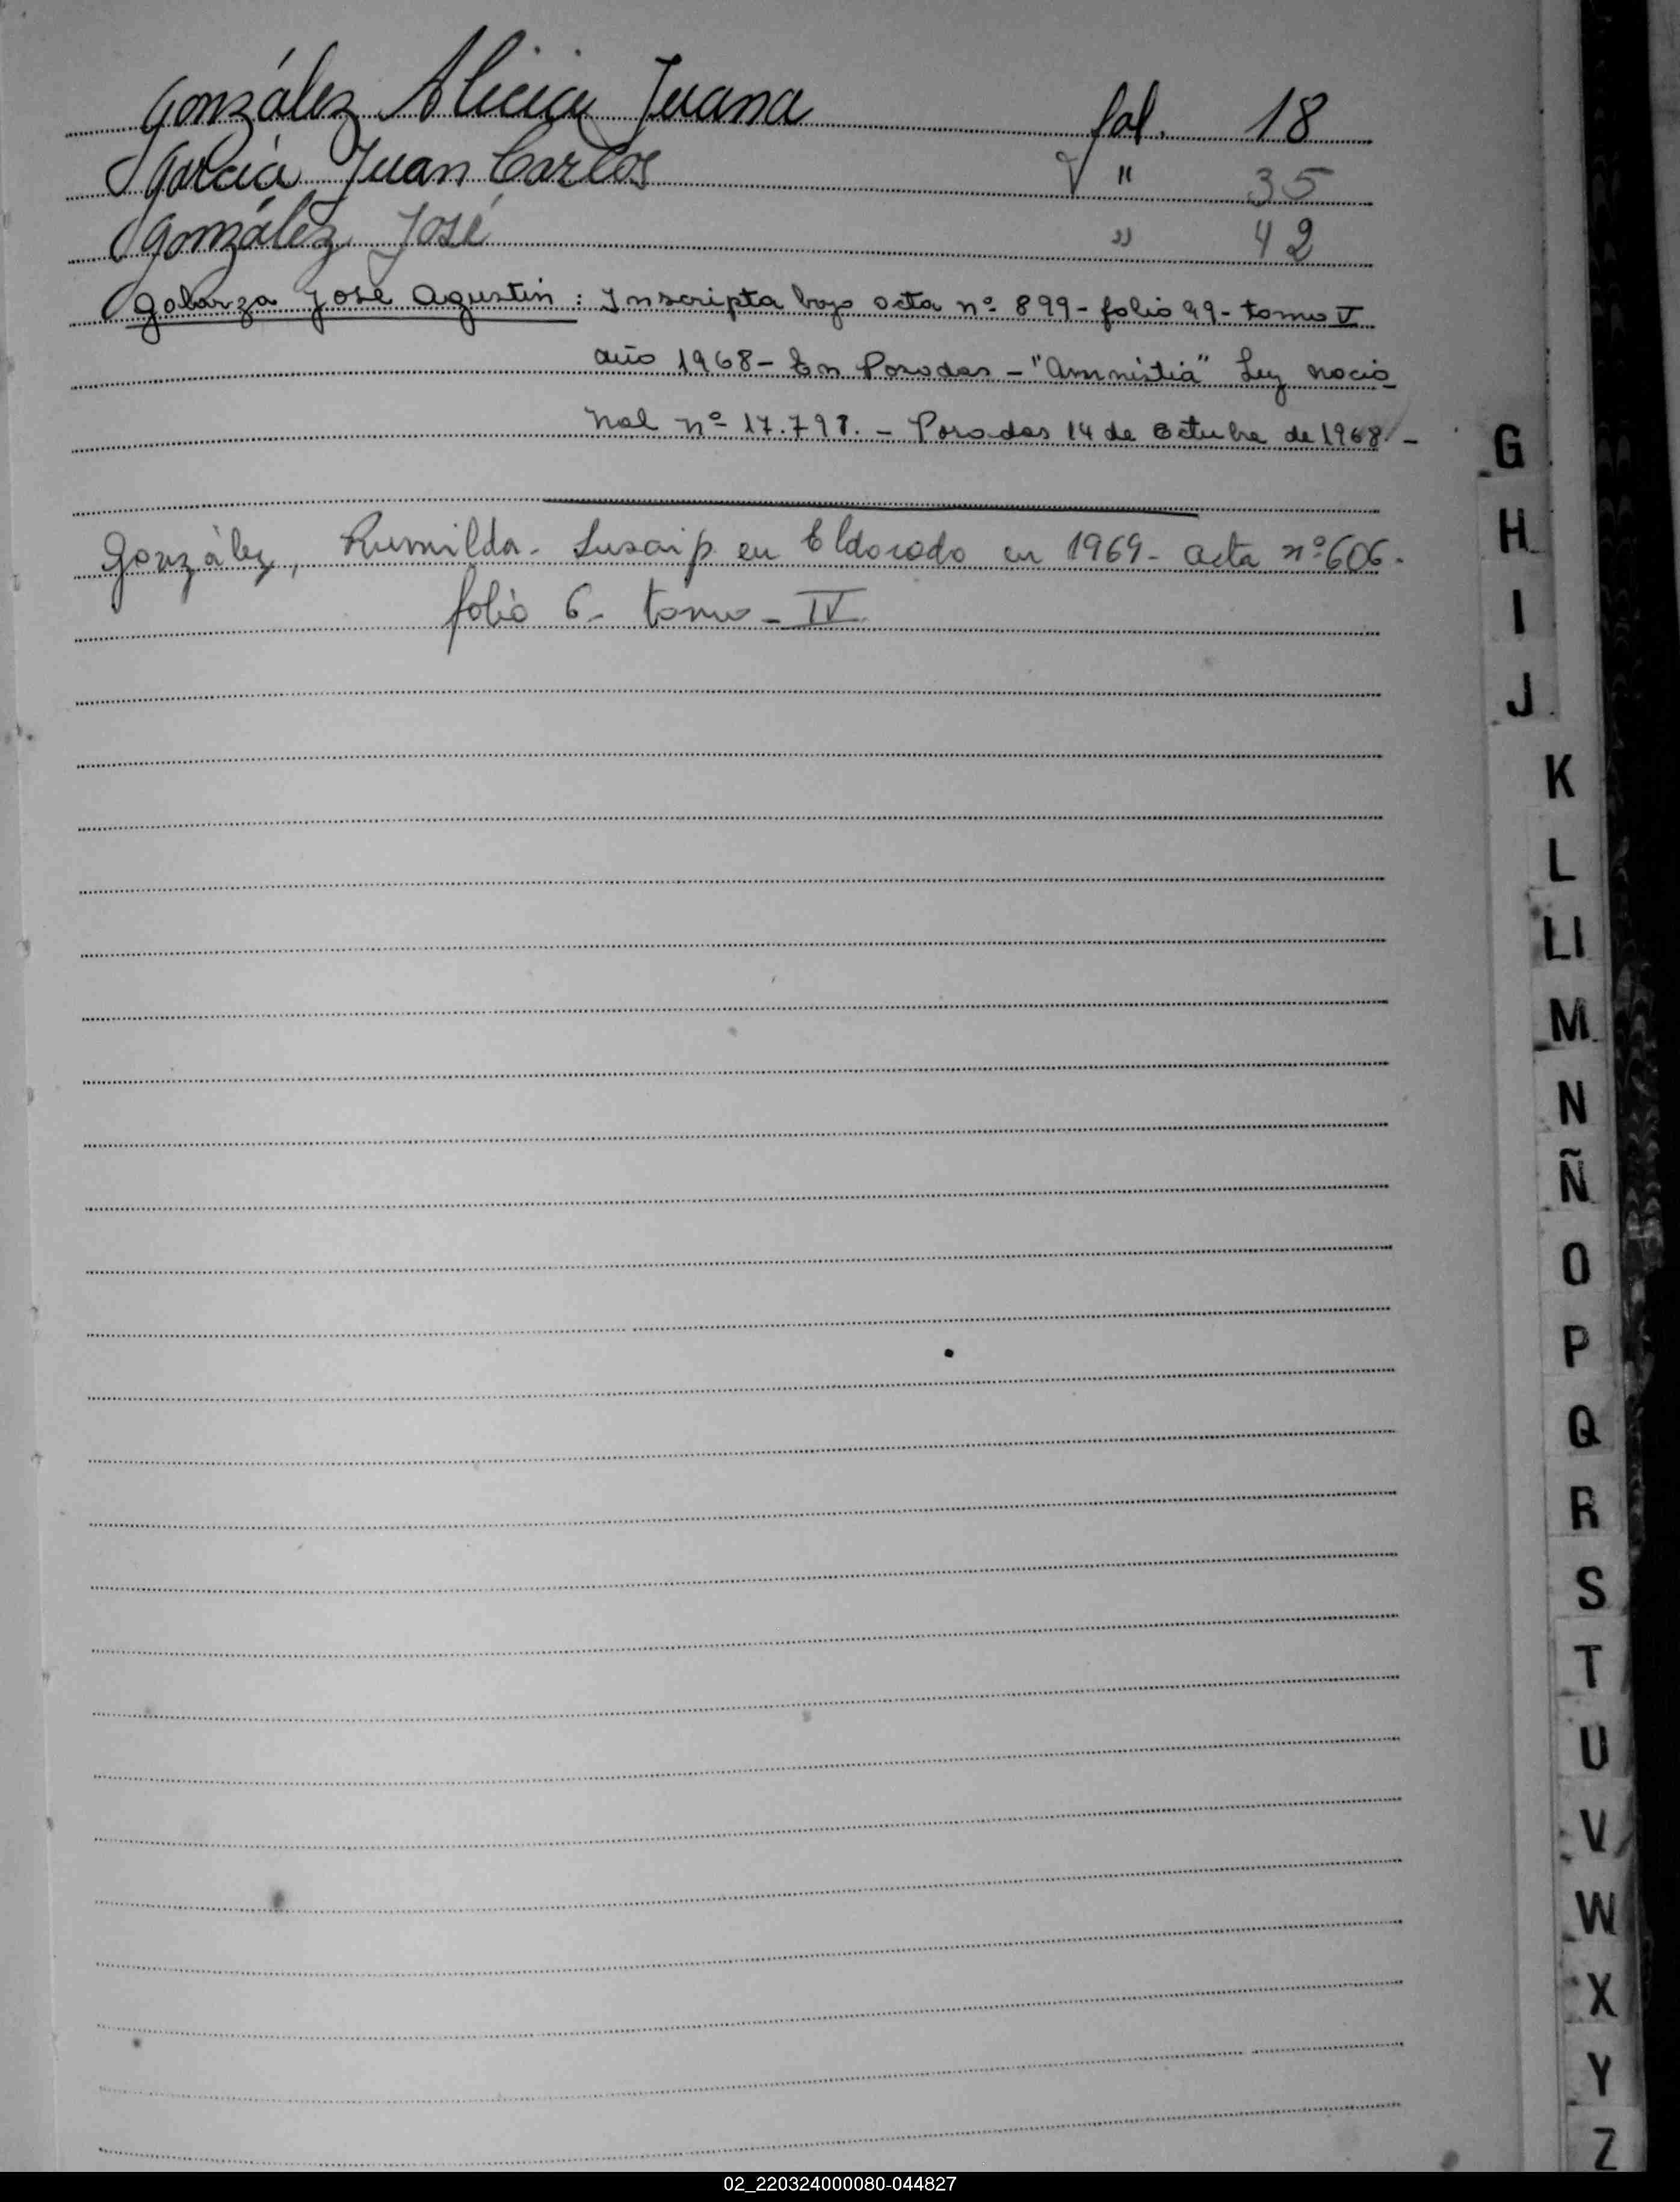 González Alicia Juana fol. 18
García Juan Carlos " 35
González José " 42
Galarza José Agustín : Inscripta bajo acta nº 899 - folio 99 - tomo V
año 1968 - En Posadas - "Amnistia" Ley nacio
nal nº 17.797. - Posadas 14 de Octubre de 1968 -
González, Rumilda - Inscrip en Eldorado en 1969 - acta nº 606 -
folio 6 - tomo - IV
G
H
I
J
K
L
Ll
M
N
Ñ
O
P
Q
R
S
T
U
V
W
X
Y
Z
02_220324000080-044827